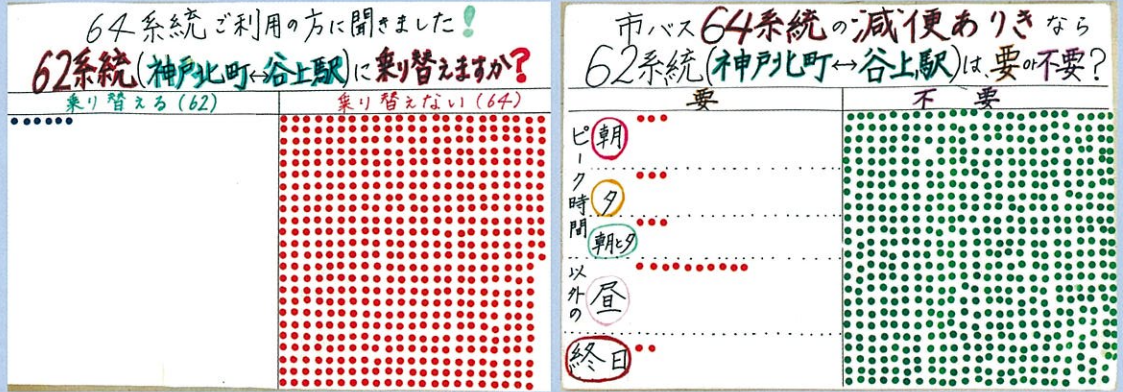 64系統ご利用の方に聞きました!
62系統(神戸北町↔谷上駅)に乗り替えますか?
乗り替える(62)
乗り替えない(64)
市バス64系統の減便ありきなら
62系統(神戸北町↔谷上駅)は、要or不要?
要
不要
ピーク時間
朝
夕
朝と夕
以外の
昼
終日